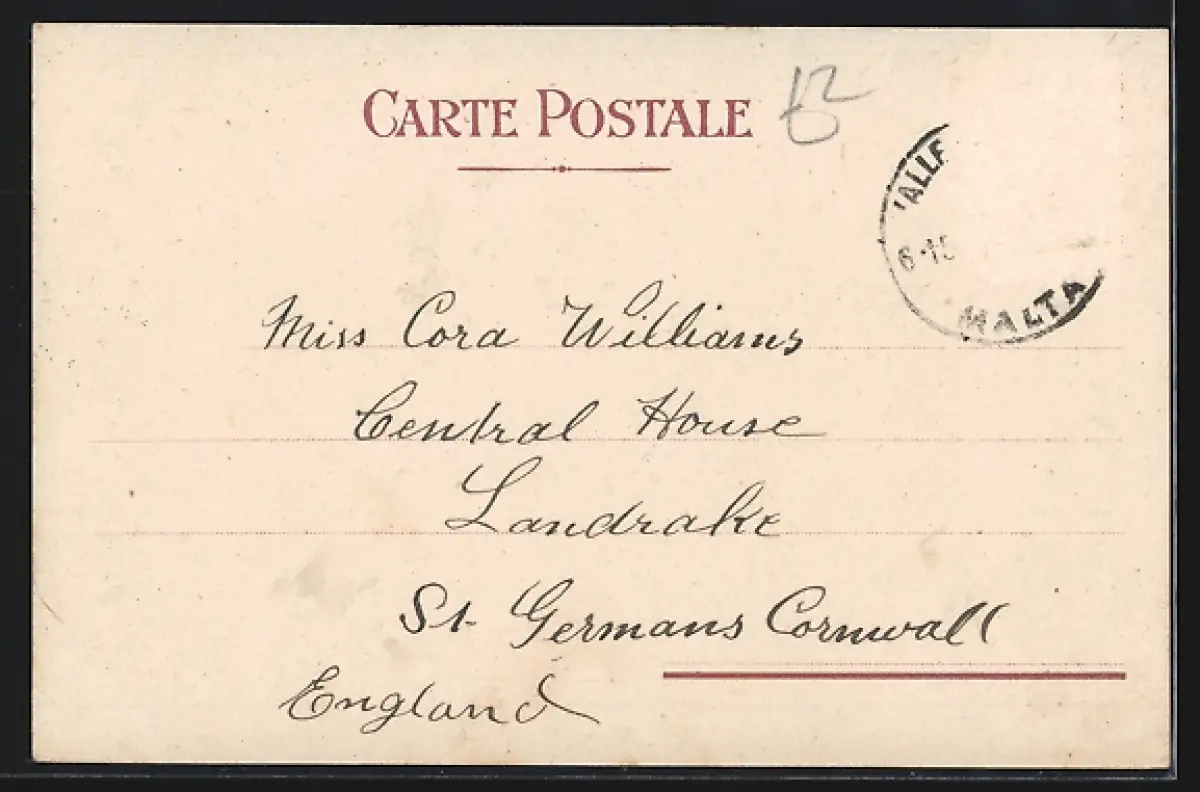 CARTE POSTALE
MALTA
Miss Cora Williams
Central House
Landrake
St. Germans Cornwall
England